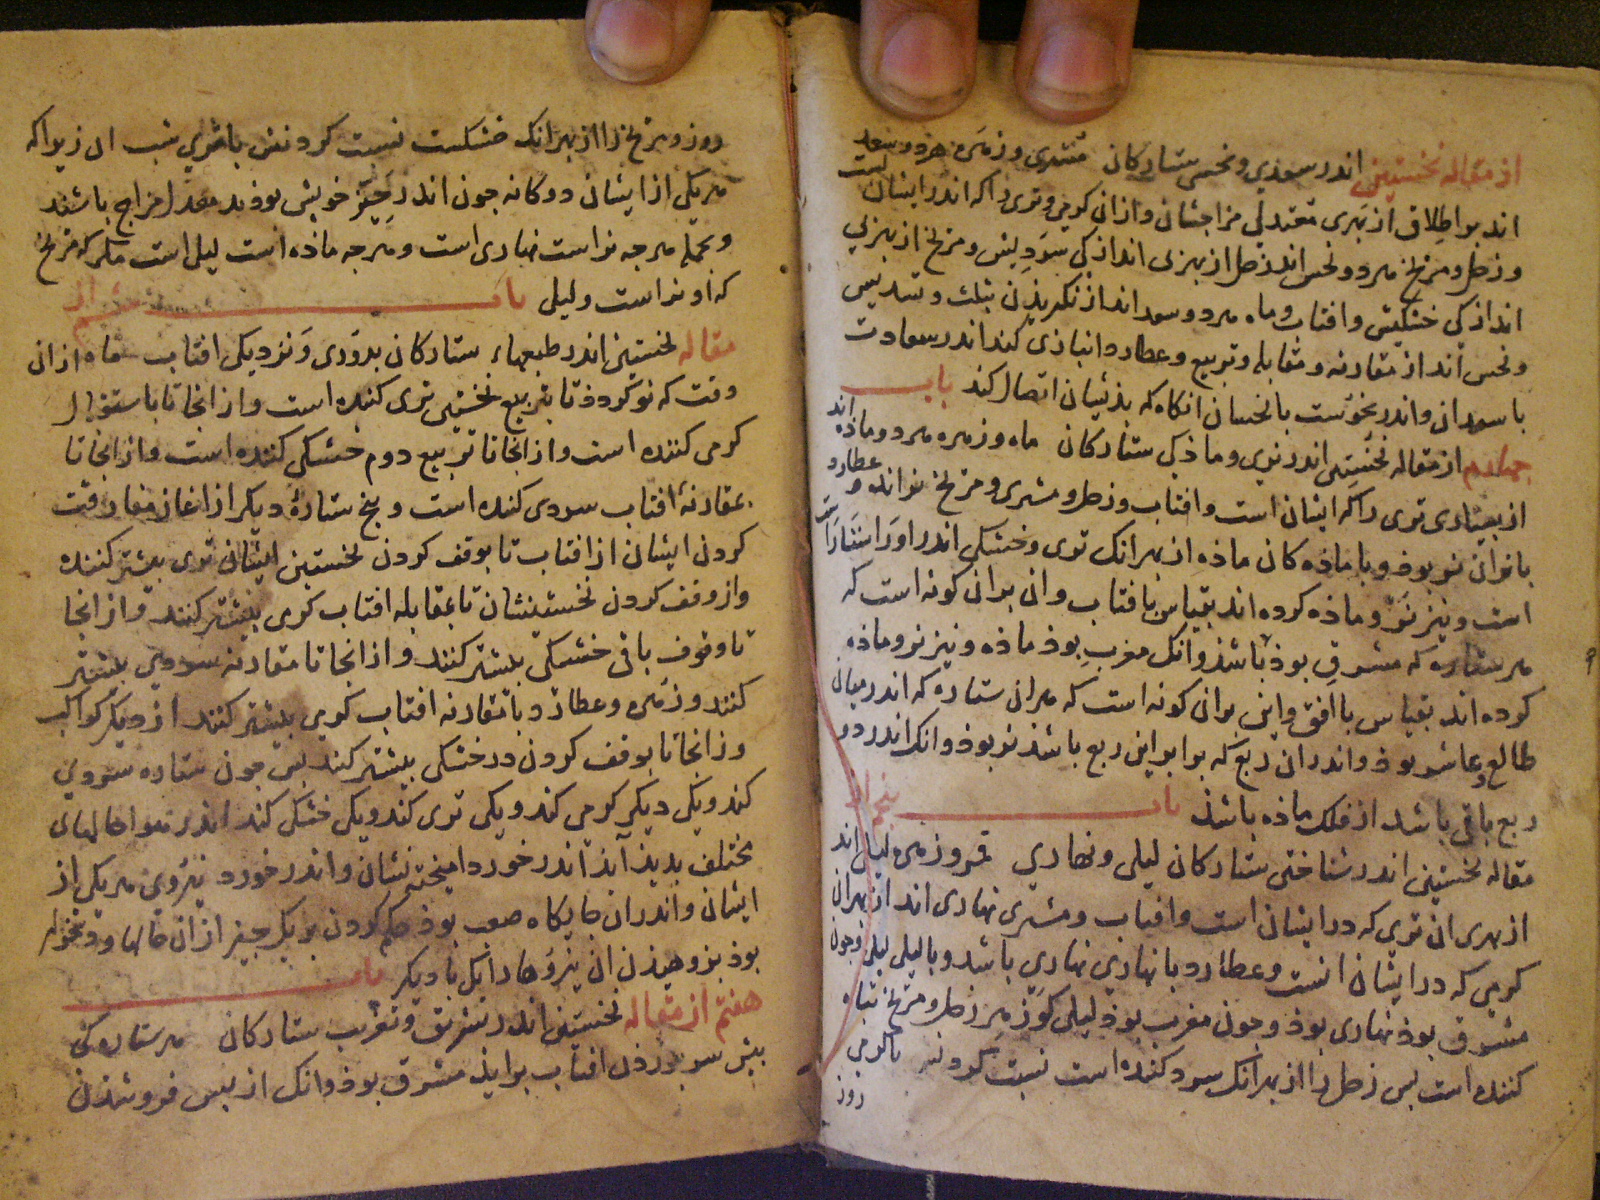 از مقاله نخستین اندر سعدی و نحسی ستارکان مشتری و زهره هردو سعد
اند بر اطلاق از بهری معتدلی مزاجشان و از آن کرمی و تری را که اندر ایشان است
و زحل و مریخ هردو نحس اند زحل از بهر بی اندازکی سردیش و مریخ از بهر بی
اندازکی خشکیش و افتاب و ماه هردو سعد اند از نکریدن بتثلیث و تسدیس
و نحس اند از مقارنه و مقابله و تربیع و عطارد انبازی کند اندر سعادت
با سعدان و اندر نحوست با نحسان انکاه که بذیشان اتصال کند باب
چهارم از مقاله نخستین اندر نری و ماذکی ستارکان ماه و زهره هردو ماذه اند
از بسیاری تری را که ایشان است و افتاب و زحل و مشتری و مریخ نر اند و عطارد
با نران نر بوذ و با ماذه کان ماذه از بهر انک تری و خشکی اندر او راست
است و نیز نر و ماذه کرده اند بقیاس با افتاب و ان بران کونه است که
هر ستاره که مشرقی بوذ نر باشذ و انک مغربی بوذ ماذه و نیز نر و ماذه
کرده اند بقیاس با افق و این بران کونه است که هران ستاره که اندر میان
طالع و عاشر بوذ و اندر ان ربع که برابر این ربع باشذ نر بوذ و انک اندر دو
ربع باقی باشد از فلک ماذه باشذ باب پنجم از
مقاله نخستین اندر شناختن ستارکان لیلی و نهاری قمر و زهره لیلی اند
از بهری ان تری که در ایشان است و افتاب و مشتری نهاری اند از بهر ان
کرمی که در ایشان است و عطارد با نهاری نهاری باشد و با لیلی لیلی و چون
مشرقی بوذ نهاری بوذ و چون مغربی بوذ لیلی زحل و مریخ تباه
کننده است بس زحل را از بهر انک سرد کننده است نسبت کردند با کرمی
روز
روز و مریخ را از بهر انک خشکست نسبت کردنش با تری شب از زیرا که
هریکی از ایشان دوکانه چون اندر حیز خویش بوند معتدل مزاج باشند
و بجمله هرچه نر است نهاری است و هرچه ماذه است لیلی است مکر که مریخ
که او نر است و لیلی باب ششم از
مقاله نخستین اندر طبعهاء ستارکان بدوری و نزدیکی افتاب ماه از ان
وقت که نو کردذ تا بتربیع نخستین تری کننده است و از انجا تا باستقبال
کرمی کننده است و از انجا تا تربیع دوم خشکی کننده است و از انجا تا
بمقارنه افتاب سردی کننده است و پنج ستاره دیکر از اغاز مفارقت
کردن ایشان از افتاب تا بوقف کردن نخستین ایشان تری بیشتر کننده
و از وقف کردن نخستینشان تا بمقابله افتاب کرمی بیشتر کنند و از انجا
تا وقوف باقی خشکی بیشتر کنند و از انجا تا مقارنه سردی بیشتر
کنند و زهره و عطارد با مقارنه افتاب کرمی بیشتر کنند از دیکر کواکب
و ز انجا تا بوقف کردن در خشکی بیشتر کنند بس چون ستاره سردی
کند و یکی دیکر کرمی کند و یکی تری کند و یکی خشکی کند اندر هوا حالهائی
مختلف بدیذ آیذ اندر خورد امیختنشان و اندر خورد نیروی هریکی از
ایشان و اندر ان جایکاه صعب بوذ حکم کردن بر یک چیز از ان حالها
بوذ ان نیروها را یک با دیکر باب
هفتم از مقاله نخستین اندر تشریق و تغریب ستارکان هر ستاره کی
بیش سر بر زدن افتاب برایذ مشرقی بوذ و انک از پس فرو شدن